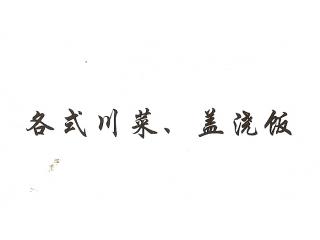 各式川菜、盖浇饭